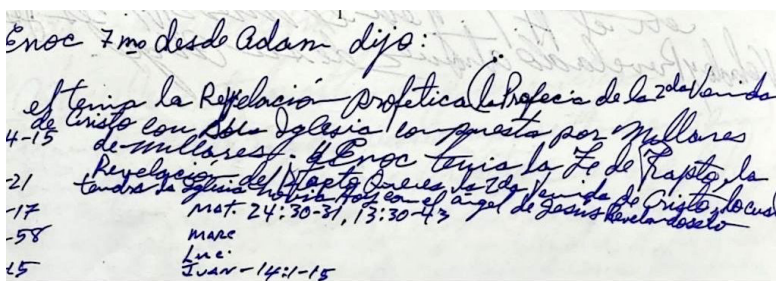 Enoc 7mo desde Adam dijo:
el tenia la Revelación profetica (la Profecia de la 2da Venida
de Cristo con Iglesia compuesta por millares
4-15 de millares. y Enoc tenia la Fe de Rapto, la
Revelación del Rapto Que es la 2da Venida de Cristo, lo cual
-21 tendra la Iglesia novia hoy con el angel de Jesus Revelandoselo
-17 Mat. 24:30-31, 13:30-43
-58 Marc
Luc.
15 Juan-14:1-15